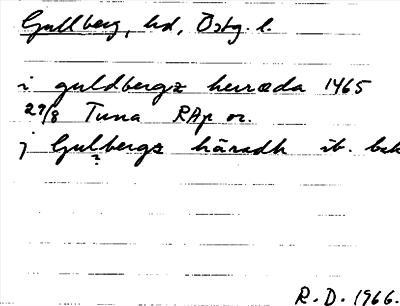 Gullberg, hd, Östg. l.
i guldbergz herræda 1465
27/8 Tuna RAp or.
j Gulbergz häradh ib. bak
R.D. 1966.